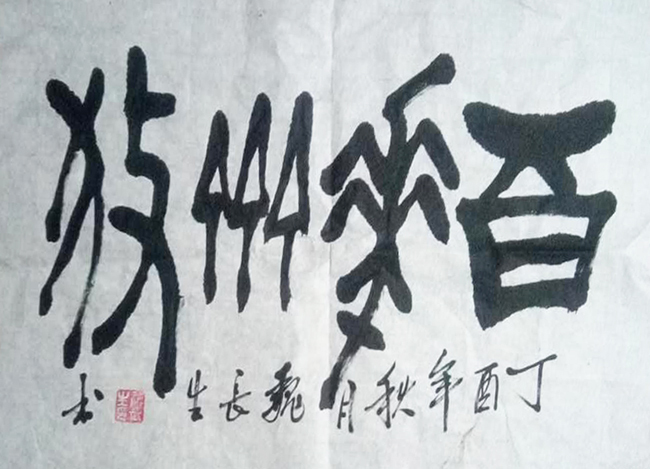 百華齊放
丁酉年秋月魏長生书